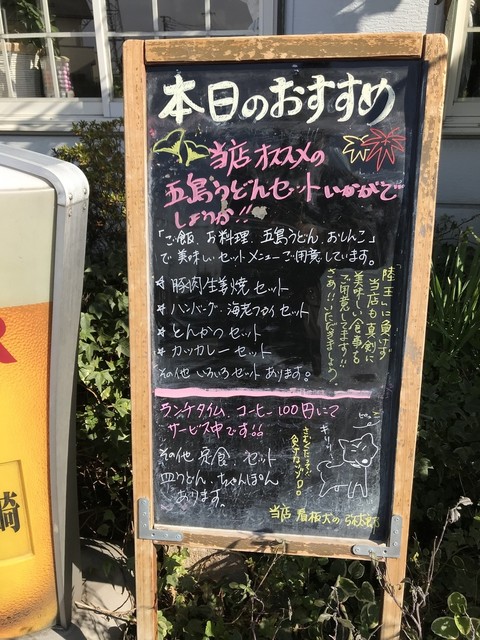 本日のおすすめ
当店オススメの
五島うどんセットいかがで
しょうか!!
「ご飯、お料理、五島うどん、おしんこ」
で美味しいセットメニューご用意しています。
☆豚肉生姜焼セット
☆ハンバーグ・海老フライセット
☆とんかつセット
☆カツカレーセット
その他いろいろセットあります。
陸王に負けず
当店も真剣に
美味しい食事を
ご用意してます!!
さあ!!いただきましょう
ランチタイム、コーヒー100円にて
サービス中です!!
その他定食、セット
皿うどん、ちゃんぽん
あります。
さむくたって
負けないゾロロ
キリッ
当店看板犬の
崎